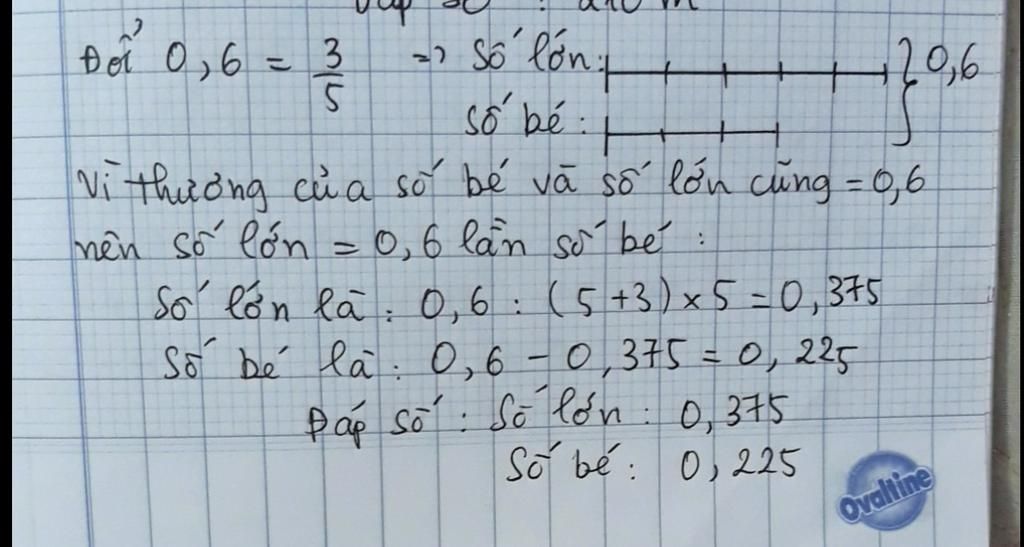 Đáp số : 240 m
Đổi 0,6 = 3/5 => Số lớn: 0,6
Số bé :
Vì thương của số bé và số lớn cũng = 0,6
nên số lớn = 0,6 lần số bé :
Số lớn là : 0,6 : (5 + 3) x 5 = 0,375
Số bé là : 0,6 - 0,375 = 0,225
Đáp số : Số lớn : 0,375
Số bé : 0,225
Ovaltine